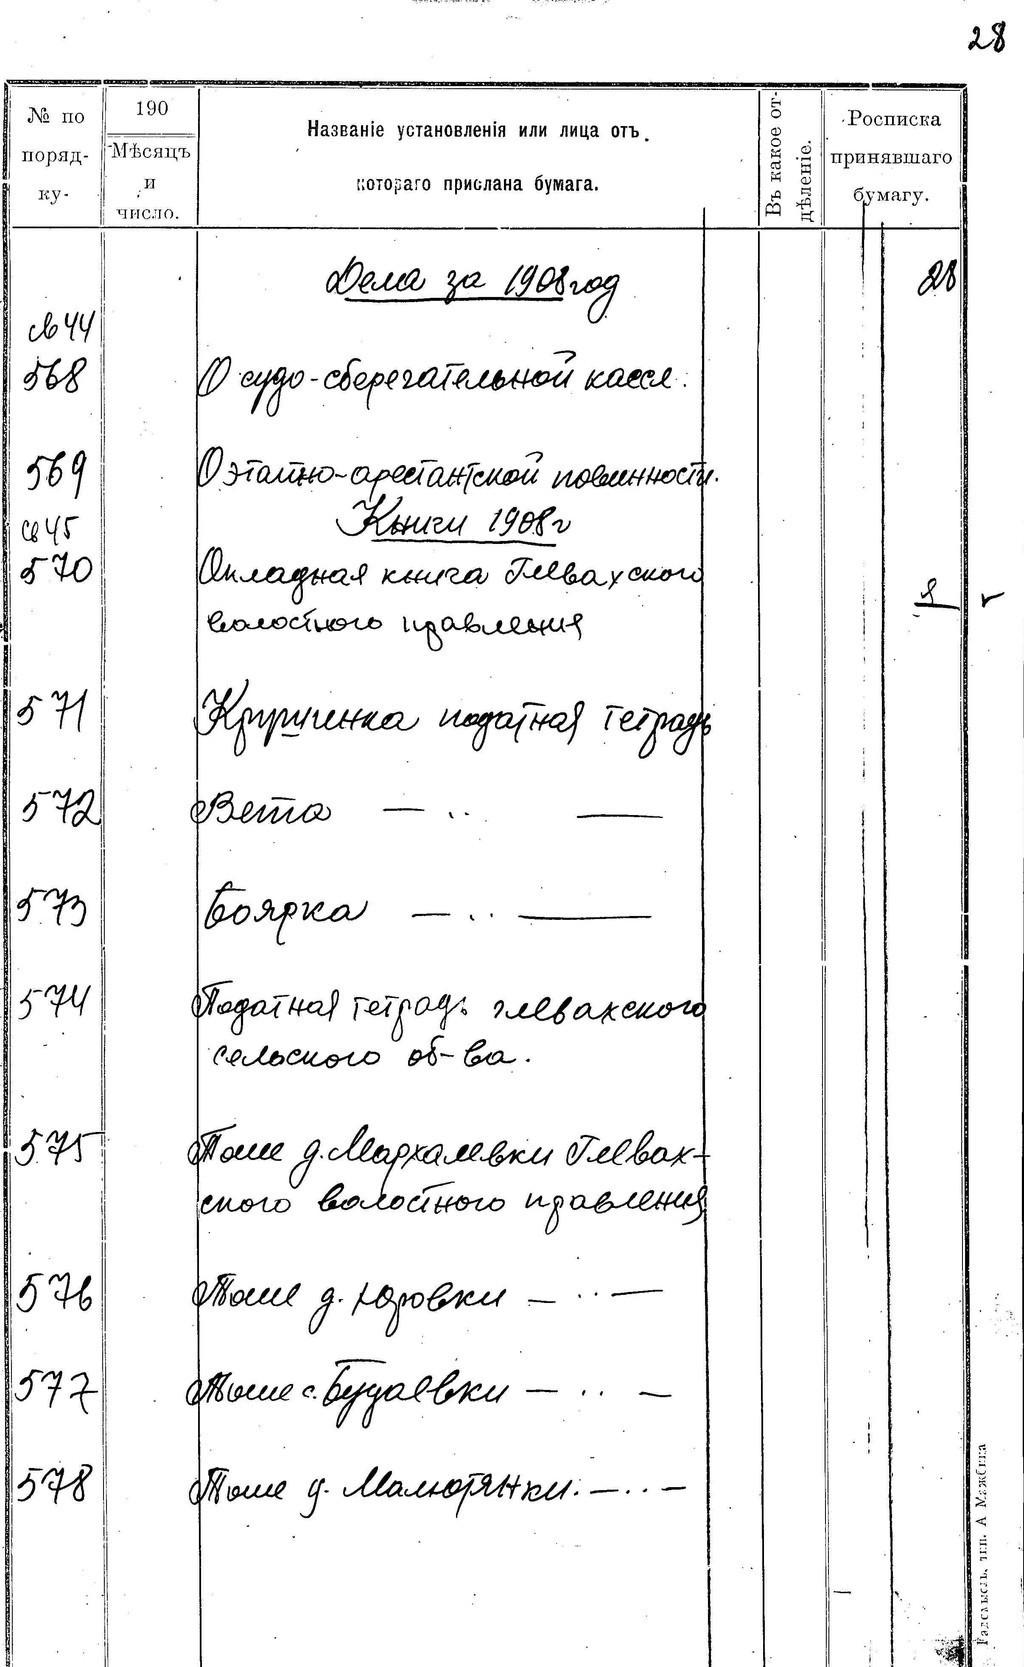 28
№ по порядку-
190
Мѣсяцъ и число.
Названіе установленія или лица отъ котораго прислана бумага.
Въ какое отдѣленіе.
Росписка принявшаго бумагу.
Дела за 1908 год
28
св 44
568 О судо-сберегательной кассе.
569 О этапно-арестантской повинности.
Книги 1908 г
св 45
570 Окладная книга Глевахского
волостного правления
571 Кручченка податная тетрадь
572 Вета — .. —
573 Боярка — .. —
574 Податная тетрадь глевахского
сельского об-ва.
575 Тоже д. Мархалевки Глевах-
ского волостного правления
576 Тоже д. Юровки — .. —
577 Тоже с. Будаевки — .. —
578 Тоже д. Малютянки. — .. —
Радомысль, тип. А Мажбица